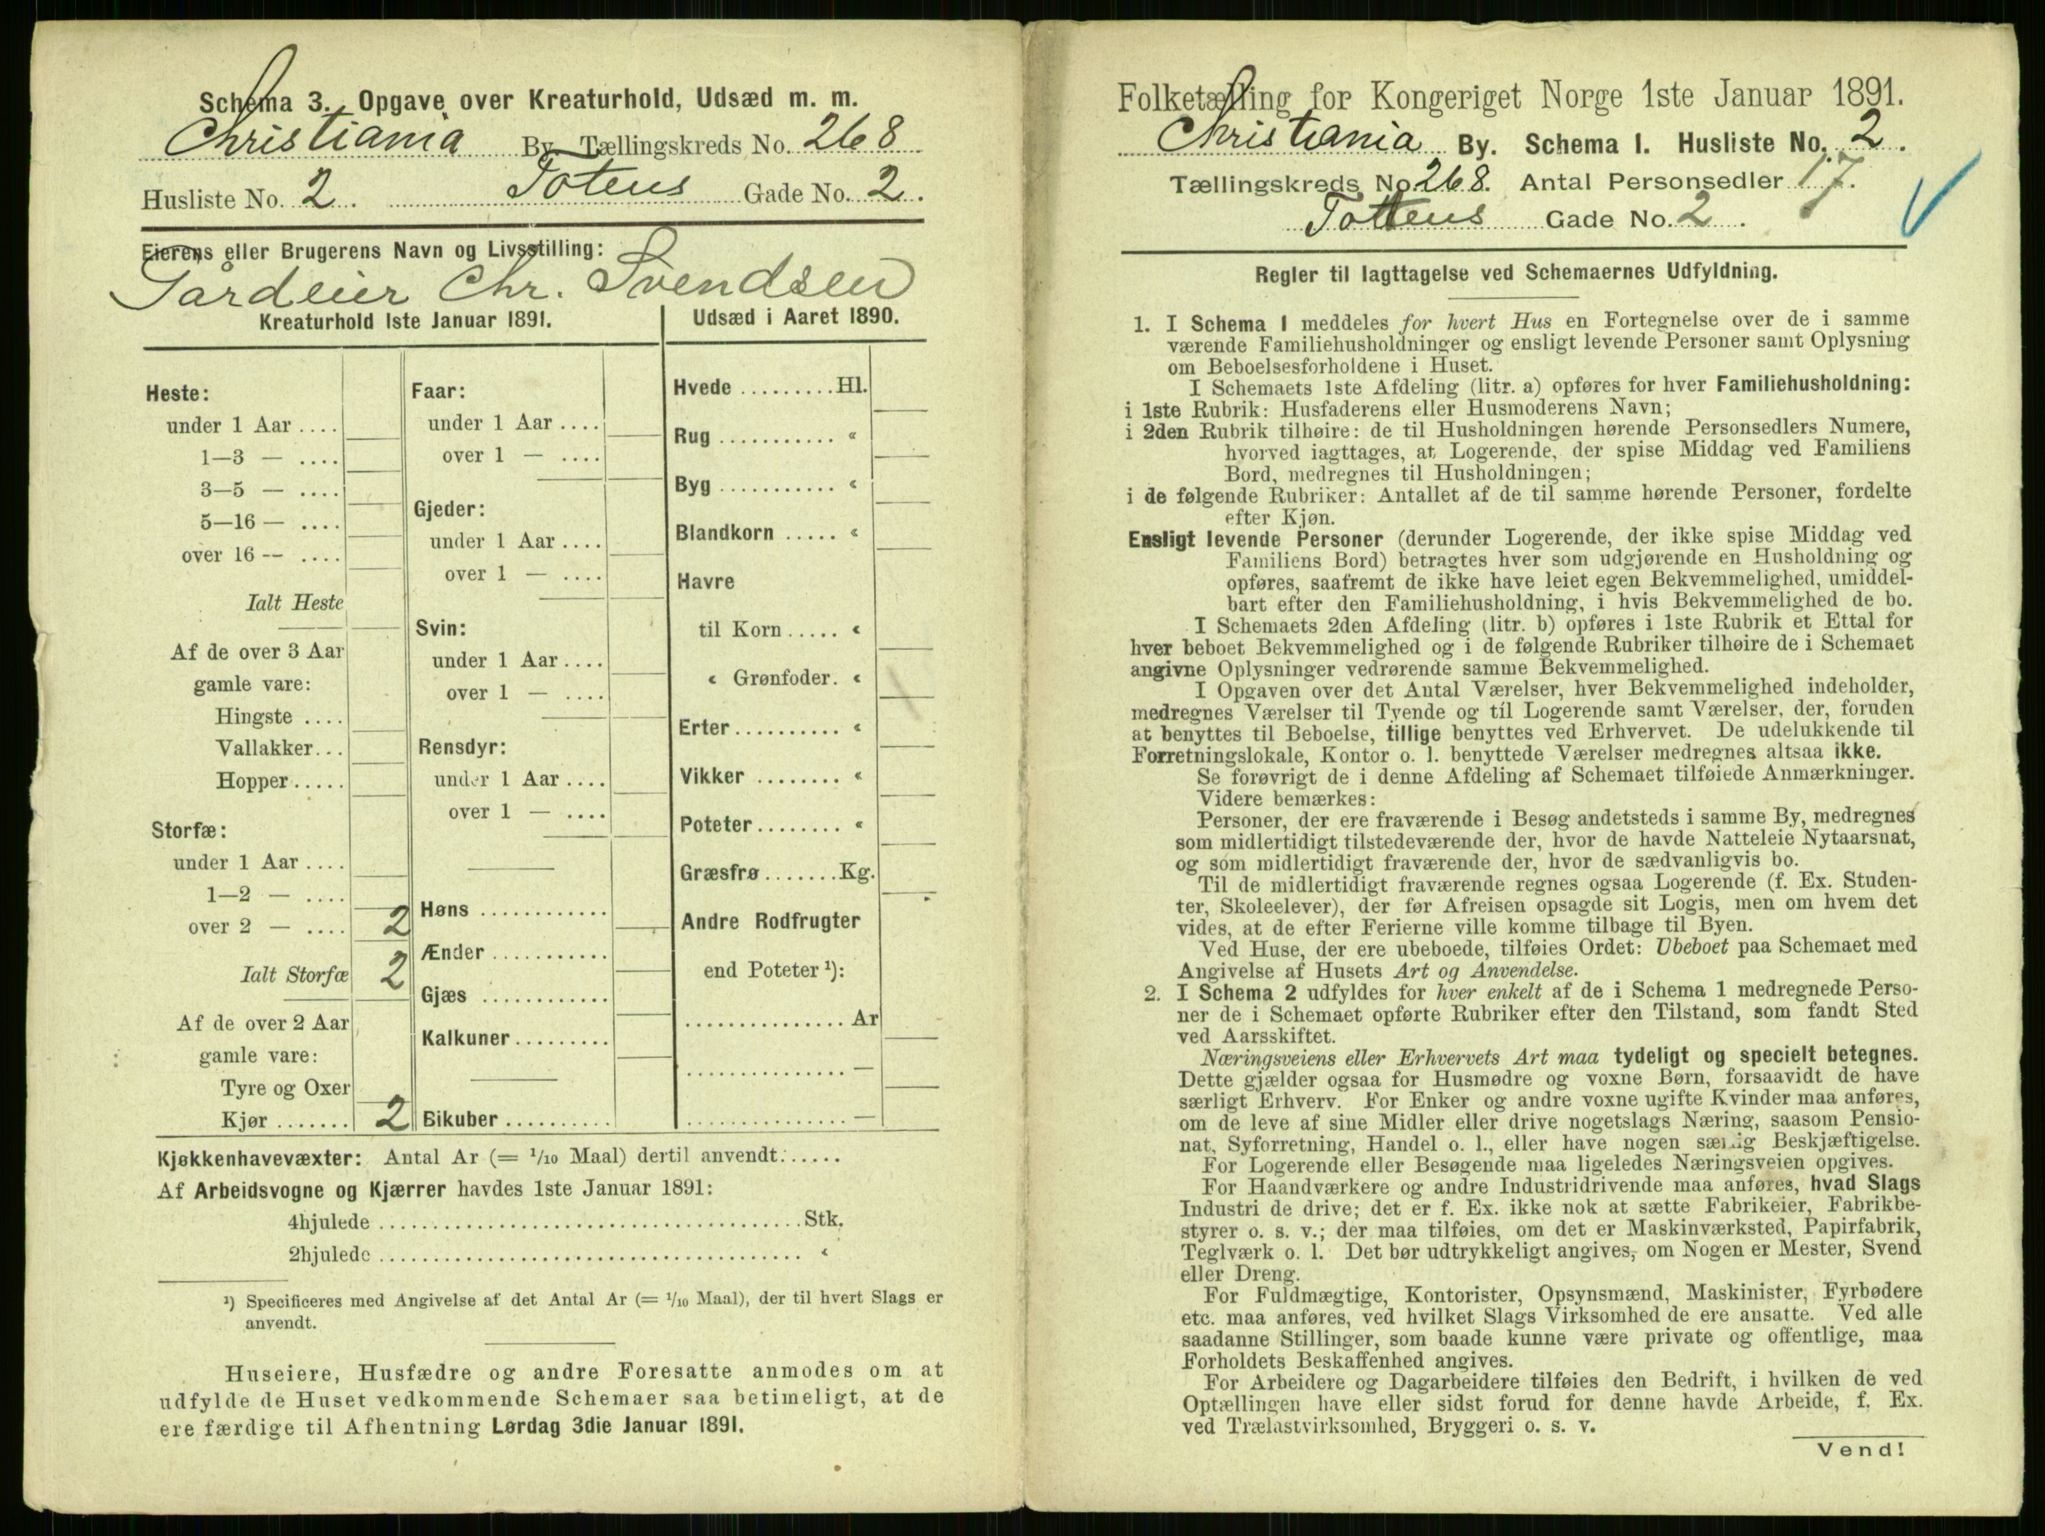 Schema 3. Opgave over Kreaturhold, Udsæd m. m.
Christiania By. Tællingskreds No. 268
Husliste No. 2. Totens Gade No. 2.
Eierens eller Brugerens Navn og Livsstilling:
Gårdeier Chr. Svendsen
Kreaturhold 1ste Januar 1891.
Heste:
under 1 Aar ....
1—3 — ....
3—5 — ....
5—16 — ....
over 16 -- ....
Ialt Heste
Af de over 3 Aar
gamle vare:
Hingste ....
Vallakker...
Hopper.....
Storfæ:
under 1 Aar ....
1—2 — ....
over 2 — .... 2
Ialt Storfæ 2
Af de over 2 Aar
gamle vare:
Tyre og Oxer
Kjør ....... 2
Faar:
under 1 Aar ....
over 1 — ....
Gjeder:
under 1 Aar ....
over 1 — ....
Svin:
under 1 Aar ....
over 1 — ....
Rensdyr:
under 1 Aar ....
over 1 — ....
Høns ............
Ænder ...........
Gjæs ............
Kalkuner .........
Bikuber ..........
Udsæd i Aaret 1890.
Hvede ........ Hl.
Rug ........... «
Byg ........... «
Blandkorn ..... «
Havre
til Korn ..... «
« Grønfoder. «
Erter .......... «
Vikker ........ «
Poteter ........ «
Græsfrø ....... Kg.
Andre Rodfrugter
end Poteter ¹):
............... Ar
............... —
............... —
Kjøkkenhavevæxter: Antal Ar (= 1/10 Maal) dertil anvendt......
Af Arbeidsvogne og Kjærrer havdes 1ste Januar 1891:
4hjulede ........................................ Stk.
2hjulede ........................................ «
¹) Specificeres med Angivelse af det Antal Ar (= 1/10 Maal), der til hvert Slags er
anvendt.
Huseiere, Husfædre og andre Foresatte anmodes om at
udfylde de Huset vedkommende Schemaer saa betimeligt, at de
ere færdige til Afhentning Lørdag 3die Januar 1891.
Folketælling for Kongeriget Norge 1ste Januar 1891.
Christiania By. Schema 1. Husliste No. 2.
Tællingskreds No. 268. Antal Personsedler 17.
Tottens Gade No. 2.
Regler til Iagttagelse ved Schemaernes Udfyldning.
1. I Schema 1 meddeles for hvert Hus en Fortegnelse over de i samme
værende Familiehusholdninger og ensligt levende Personer samt Oplysning
om Beboelsesforholdene i Huset.
I Schemaets 1ste Afdeling (litr. a) opføres for hver Familiehusholdning:
i 1ste Rubrik: Husfaderens eller Husmoderens Navn;
i 2den Rubrik tilhøire: de til Husholdningen hørende Personsedlers Numere,
hvorved iagttages, at Logerende, der spise Middag ved Familiens
Bord, medregnes til Husholdningen;
i de følgende Rubriker: Antallet af de til samme hørende Personer, fordelte
efter Kjøn.
Ensligt levende Personer (derunder Logerende, der ikke spise Middag ved
Familiens Bord) betragtes hver som udgjørende en Husholdning og
opføres, saafremt de ikke have leiet egen Bekvemmelighed, umiddel-
bart efter den Familiehusholdning, i hvis Bekvemmelighed de bo.
I Schemaets 2den Afdeling (litr. b) opføres i 1ste Rubrik et Ettal for
hver beboet Bekvemmelighed og i de følgende Rubriker tilhøire de i Schemaet
angivne Oplysninger vedrørende samme Bekvemmelighed.
I Opgaven over det Antal Værelser, hver Bekvemmelighed indeholder,
medregnes Værelser til Tyende og til Logerende samt Værelser, der, foruden
at benyttes til Beboelse, tillige benyttes ved Erhvervet. De udelukkende til
Forretningslokale, Kontor o. l. benyttede Værelser medregnes altsaa ikke.
Se forøvrigt de i denne Afdeling af Schemaet tilføiede Anmærkninger.
Videre bemærkes:
Personer, der ere fraværende i Besøg andetsteds i samme By, medregnes
som midlertidigt tilstedeværende der, hvor de havde Natteleie Nytaarsnat,
og som midlertidigt fraværende der, hvor de sædvanligvis bo.
Til de midlertidigt fraværende regnes ogsaa Logerende (f. Ex. Studen-
ter, Skoleelever), der før Afreisen opsagde sit Logis, men om hvem det
vides, at de efter Ferierne ville komme tilbage til Byen.
Ved Huse, der ere ubeboede, tilføies Ordet: Ubeboet paa Schemaet med
Angivelse af Husets Art og Anvendelse.
2. I Schema 2 udfyldes for hver enkelt af de i Schema 1 medregnede Perso-
ner de i Schemaet opførte Rubriker efter den Tilstand, som fandt Sted
ved Aarsskiftet.
Næringsveiens eller Erhvervets Art maa tydeligt og specielt betegnes.
Dette gjælder ogsaa for Husmødre og voxne Børn, forsaavidt de have
særligt Erhverv. For Enker og andre voxne ugifte Kvinder maa anføres,
om de leve af sine Midler eller drive nogetslags Næring, saasom Pensio-
nat, Syforretning, Handel o. l., eller have nogen særlig Beskjæftigelse.
For Logerende eller Besøgende maa ligeledes Næringsveien opgives.
For Haandværkere og andre Industridrivende maa anføres, hvad Slags
Industri de drive; det er f. Ex. ikke nok at sætte Fabrikeier, Fabrikbe-
styrer o. s. v.; der maa tilføies, om det er Maskinværksted, Papirfabrik,
Teglværk o. l. Det bør udtrykkeligt angives, om Nogen er Mester, Svend
eller Dreng.
For Fuldmægtige, Kontorister, Opsynsmænd, Maskinister, Fyrbødere
etc. maa anføres, ved hvilket Slags Virksomhed de ere ansatte. Ved alle
saadanne Stillinger, som baade kunne være private og offentlige, maa
Forholdets Beskaffenhed angives.
For Arbeidere og Dagarbeidere tilføies den Bedrift, i hvilken de ved
Optællingen have eller sidst forud for denne havde Arbeide, f. Ex.
ved Trælastvirksomhed, Bryggeri o. s. v.
Vend!